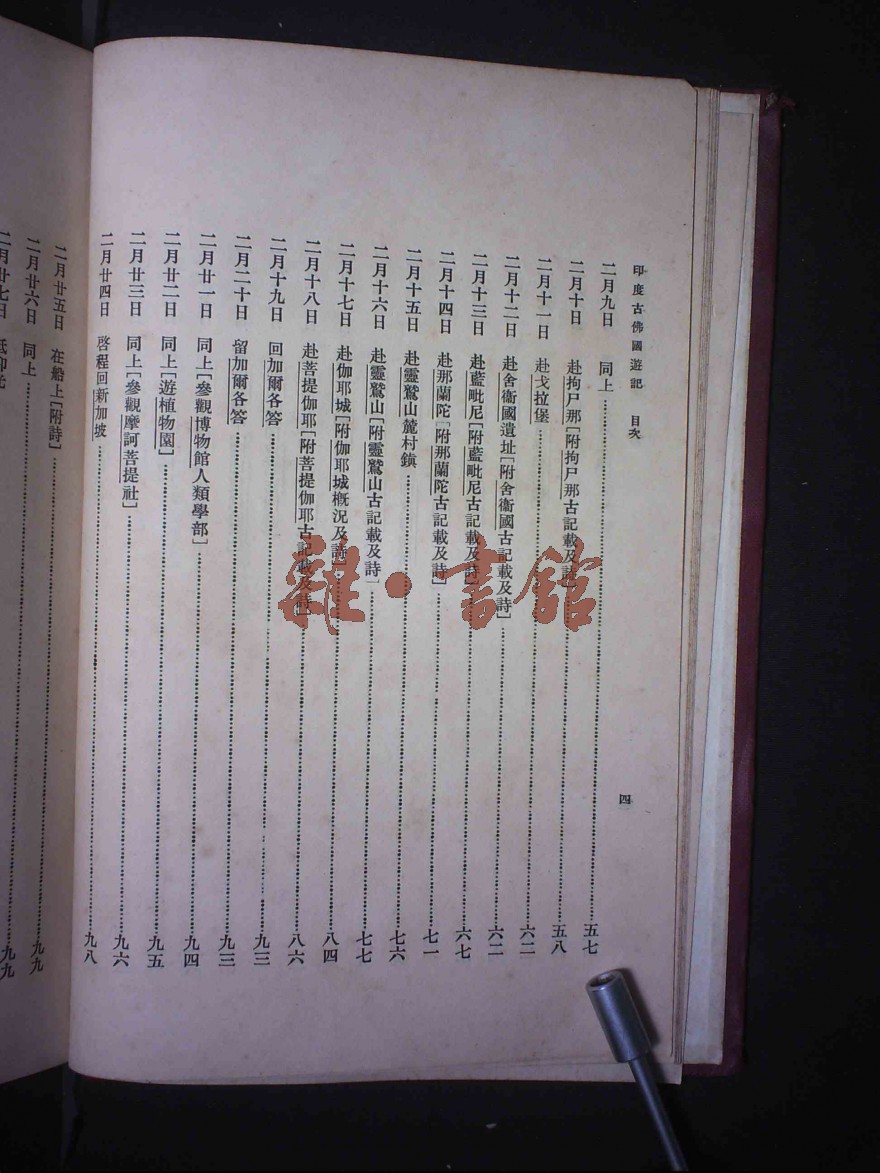 印度古佛國遊記 目次 四
二月九日 同上 五七
二月十日 赴拘尸那[附拘尸那古記載及詩] 五八
二月十一日 赴戈拉堡 六二
二月十二日 赴舍衞國遺址[附舍衞國古記載及詩] 六二
二月十三日 赴藍毗尼[附藍毗尼古記載及詩] 六七
二月十四日 赴那蘭陀[附那蘭陀古記載及詩] 七一
二月十五日 赴靈鷲山麓村鎭 七六
二月十六日 赴靈鷲山[附靈鷲山古記載及詩] 七七
二月十七日 赴伽耶城[附伽耶城槪況及詩] 八四
二月十八日 赴菩提伽耶[附菩提伽耶古記載及詩] 八六
二月十九日 回加爾各答 九三
二月二十日 留加爾各答 九三
二月廿一日 同上[參觀博物館人類學部] 九四
二月廿二日 同上[遊植物園] 九五
二月廿三日 同上[參觀摩訶菩提社] 九六
二月廿四日 啓程回新加坡 九八
二月廿五日 在船上[附詩]
二月廿六日 同上 九九
二月廿七日 九九
雜·書館